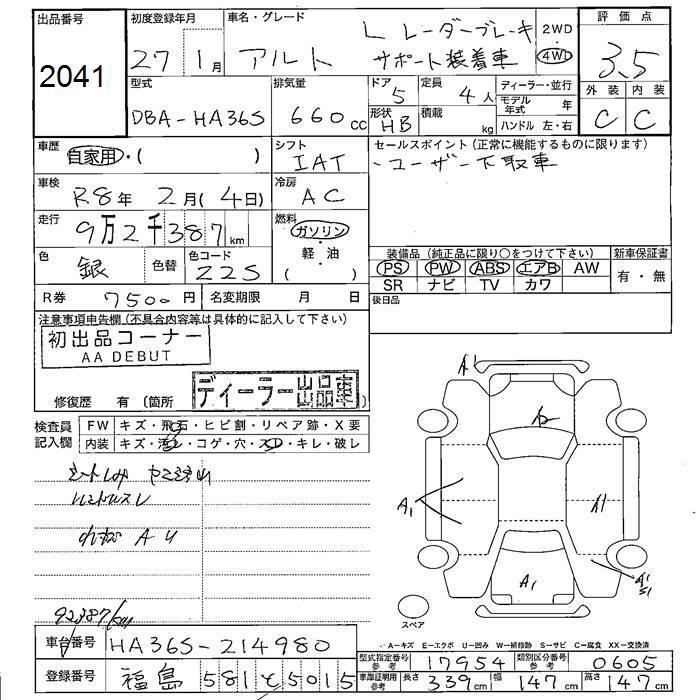 出品番号
2041
初度登録年月
27 1月
車名・グレード
アルト
L レーダーブレーキ
サポート装着車
2WD
4WD
評価点
3.5
外装 内装
C C
型式
DBA-HA36S
排気量
660cc
ドア
5
形状
HB
定員
4人
積載
kg
ディーラー・並行
モデル年式 年
ハンドル 左・右
車歴
自家用・( )
シフト
IAT
セールスポイント(正常に機能するものに限ります)
・ユーザー下取車
車検
R8年 2月(4日)
冷房
AC
走行
9万2千387km
燃料
ガソリン
・
軽・油
( )
色
銀
色替
色コード
Z2S
装備品(純正品に限り○をつけて下さい)
PS PW ABS エアB AW
SR ナビ TV カワ
新車保証書
有・無
R券 7500円
名変期限 月 日
後日品
注意事項申告欄(不具合内容等は具体的に記入して下さい)
初出品コーナー
AA DEBUT
ディーラー出品車
修復歴 有(箇所
検査員
記入欄
FW キズ・飛石・ヒビ割・リペア跡・X要
内装 キズ・汚レ・コゲ・穴・スレ・キレ・破レ
ハンドルスレ
92387km
A1
A1
A1
A1
A1
S1
スペア
車台番号
HA36S-214980
登録番号
福島 581 そ 5015
A-キズ E-エクボ U-凹み W-補修跡 S-サビ C-腐食 XX-交換済
型式指定番号
参考
17954
類別区分番号
参考
0605
車庫証明用
参考
長さ 339cm 幅 147cm 高さ 147cm